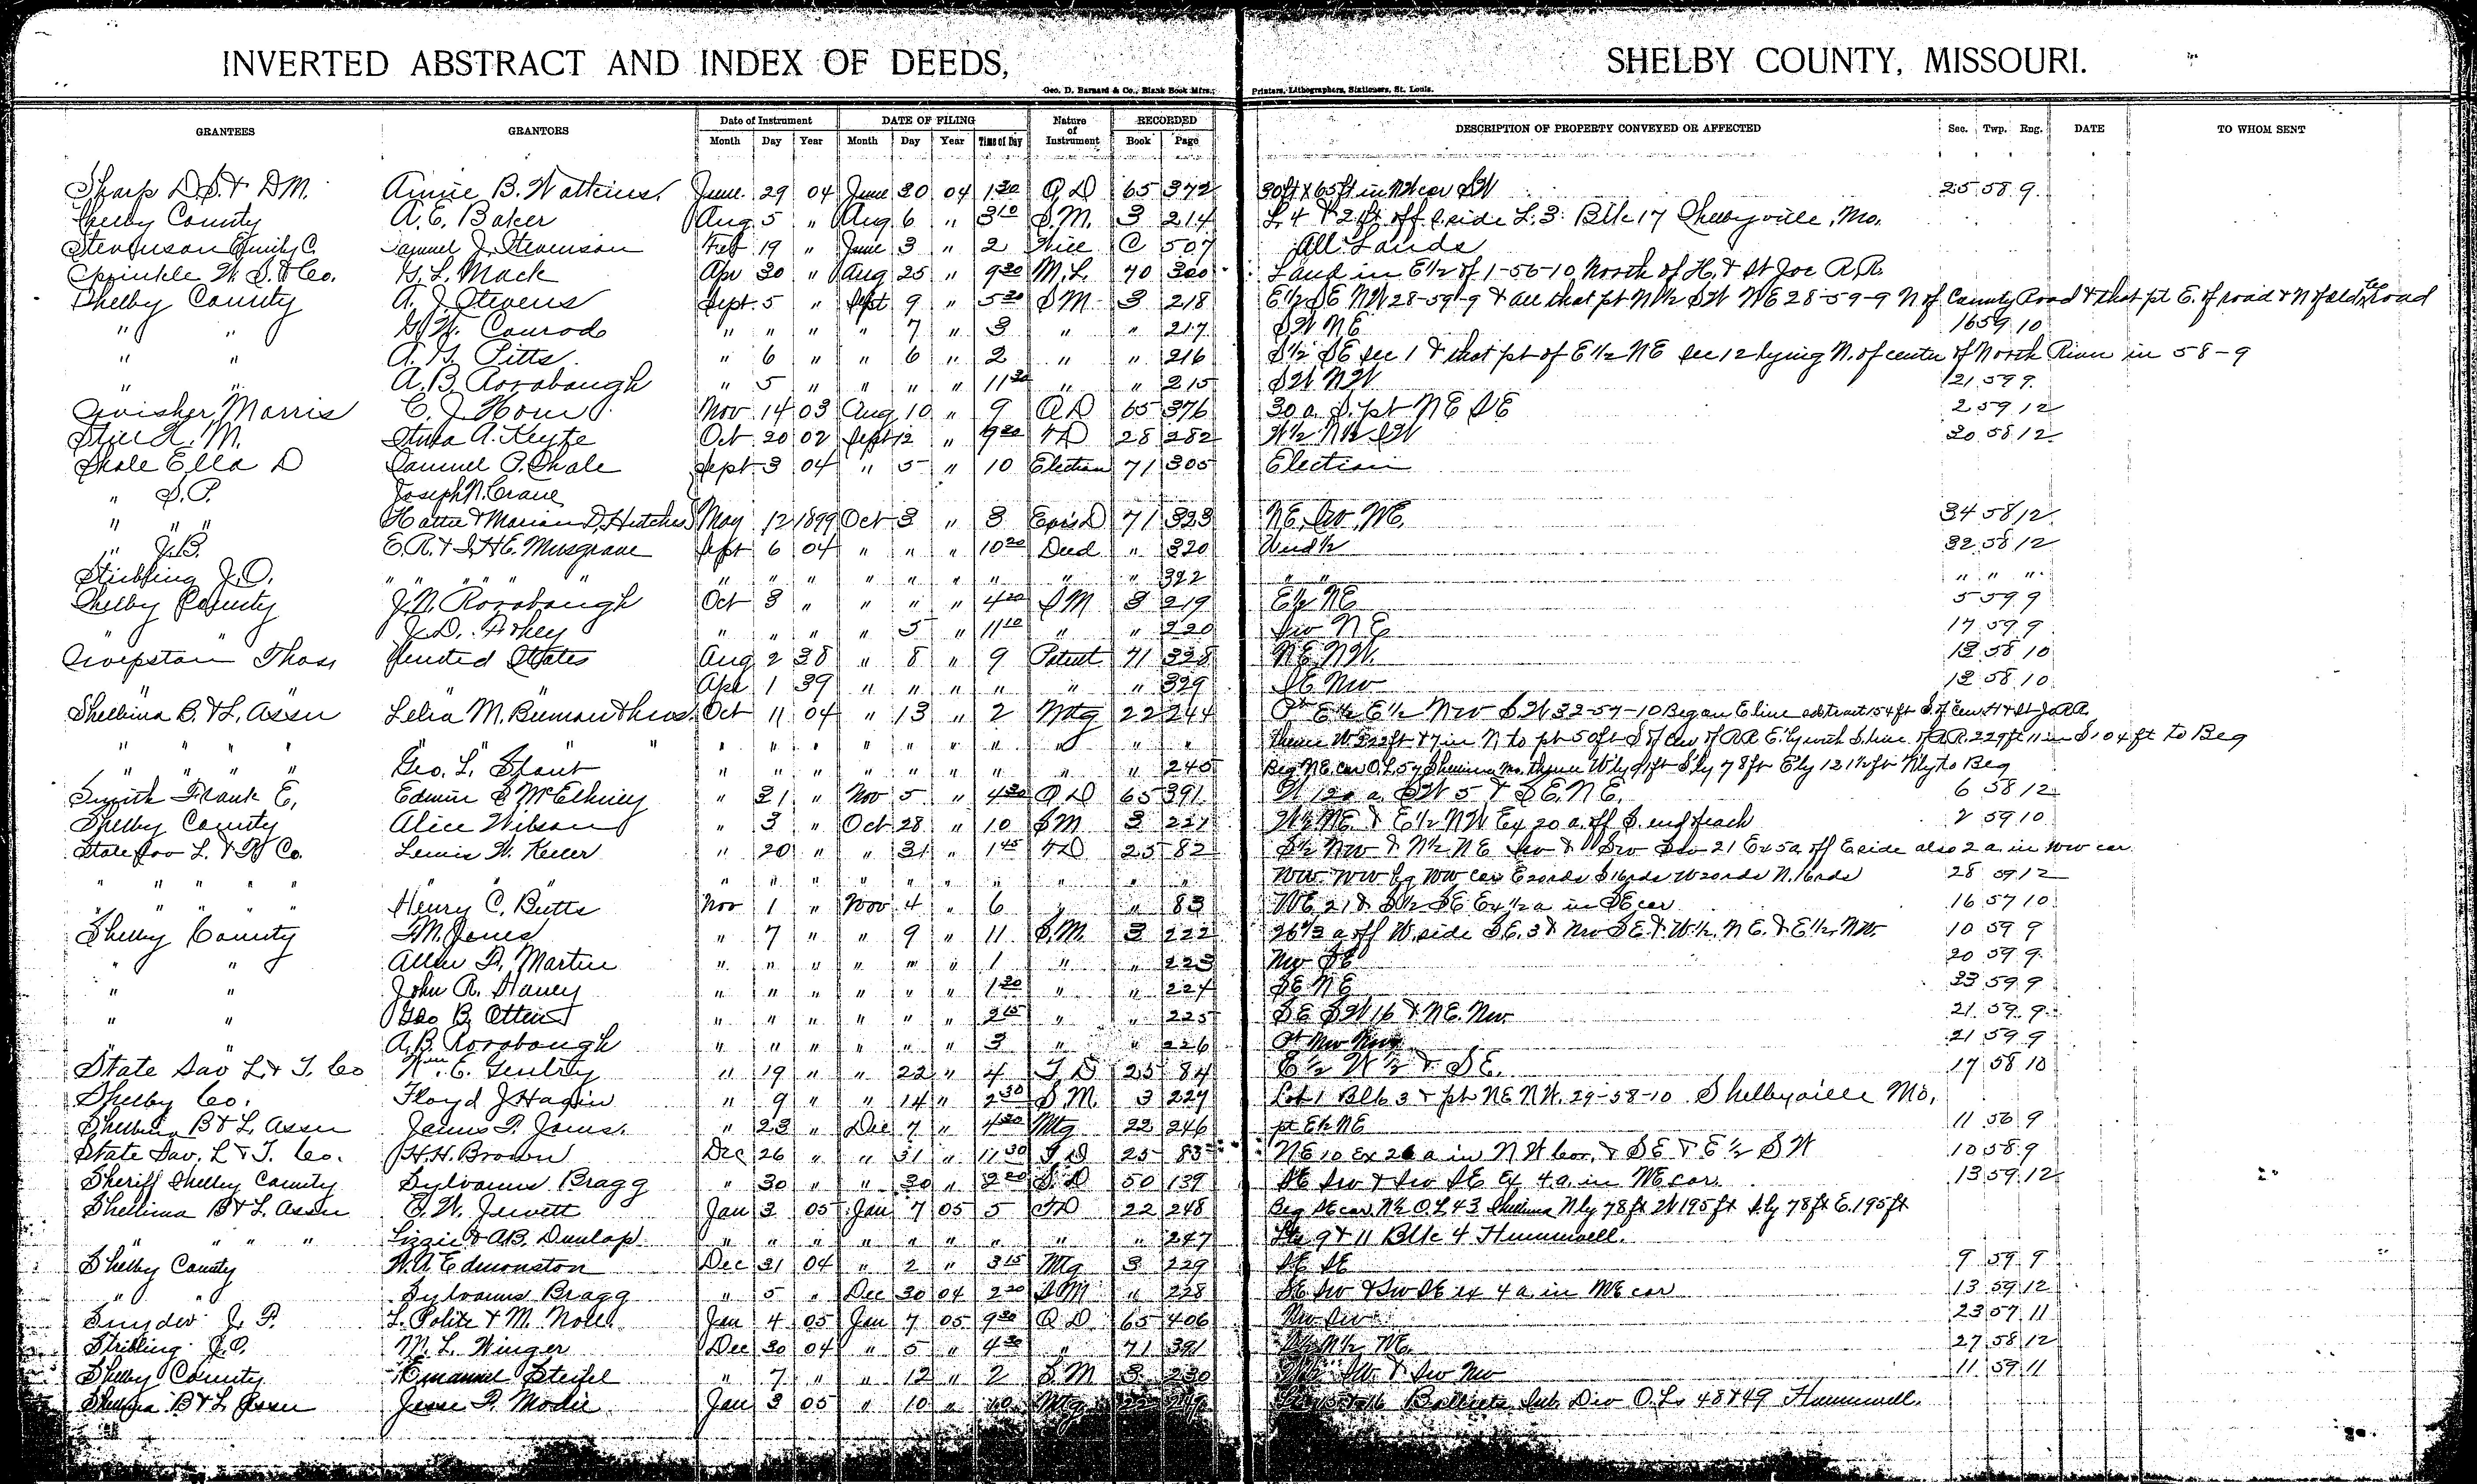 INVERTED ABSTRACT AND INDEX OF DEEDS, SHELBY COUNTY, MISSOURI.
Geo. D. Barnard & Co., Blank Book Mfrs., Printers, Lithographers, Stationers, St. Louis.
GRANTEES GRANTORS Date of Instrument DATE OF FILING Nature of Instrument RECORDED DESCRIPTION OF PROPERTY CONVEYED OR AFFECTED Sec. Twp. Rng. DATE TO WHOM SENT
Month Day Year Month Day Year Time of Day Book Page
Sharp D.S. & D.M. Annie B. Watkins June 29 04 June 30 04 1 30 Q D 65 372 30ft x 65ft in NW cor SW 25 58 9
Shelby County A. E. Baker Aug 5 " Aug 6 " 3 10 S.M. 3 214 L. 4 & 2 ft off E side L. 3 Blk 17 Shelbyville, Mo.
Stevenson Emily C. Samuel J. Stevenson Feb 19 " June 3 " 2 Will C 507 All Lands
Sprinkle W. S. & Co. G. L. Mack Apr 30 " Aug 25 " 9 30 M.L. 70 300 Land in E½ of 1-56-10 North of H. & St Joe R.R.
Shelby County A. J. Stevens Sept 5 " Sept 9 " 5 30 S M 3 218 E½ SE NW 28-59-9 & all that pt N½ SW NE 28-59-9 N of County Road & that pt E. of road & N of old Road
" " G. W. Conrode " " " " 7 " 3 " " 217 SW NE 16 59 10
" " A. G. Pitts " 6 " " 6 " 2 " " 216 S½ SE sec 1 & that pt of E½ NE sec 12 lying N. of center of North River in 58-9
" " A. B. Rorabaugh " 5 " " " " 11 30 " " 215 SW NW 21 59 9
Swisher Morris C. J. Hom Nov 14 03 Aug 10 " 9 Q D 65 376 30 a. S. pt NE SE 2 59 12
Still H. M. A. Keyte Oct 20 02 Sept 12 " 9 30 T D 28 282 W½ N½ SW 30 58 12
Shale Ella D Samuel P. Shale Sept 3 04 " 5 " 10 Election 71 305 Election
" S. P. Joseph N. Crane
" " " Hattie & Marian D. Hutches May 12 1899 Oct 3 " 3 Exr's D 71 323 NE. SW. NE. 34 58 12
" J. B. E. R. & S. H E. Musgrave Sept 6 04 " " " 10 30 Deed " 320 Und ½ 32 58 12
Stribling J. O. " " " " " " " " " " " " " " 322 " " " " "
Shelby County J. N. Rorabaugh Oct 3 " " " " 4 30 S M 3 219 E½ NE 5 59 9
J. D. " " " " 5 " 11 10 " " 220 SW NE 17 59 9
Thos. United States Aug 2 38 " 8 " 9 Patent 71 328 NE NW. 13 58 10
" " " Apr 1 39 " " " " " " 329 SE NW 13 58 10
Shelbina B. & L. Assn Lelia M. & hus. Oct 11 04 " 13 " 2 Mtg 22 244 Pt E½ E½ NW SW 32-57-10 Beg on E line 154 ft S. of Cen H & St Jo R.R.
" " " " " " " " " " " " " " " " thence W 322 ft & 7 in N to pt 50 ft S of Cen of R.R. E'ly with S. line of R.R. 229 ft 11 in S 104 ft to Beg
" " " " Geo. L. " " " " " " " " " 245 Beg NE cor O.L. 57 Shelbina Mo. thence W'ly 91 ft S'ly 78 ft E'ly 121½ ft N'ly to Beg
Smith Frank E. Edwin S McElhiney " 31 " Nov 5 " 4 30 Q D 65 391 W 120 a. SW 5 & SE. NE. 6 58 12
Shelby County Alice Wilson " 3 " Oct 28 " 10 S M 3 221 W½ NE. & E½ NW Ex 20 a. off S. end of each 2 59 10
State Sav L. & T Co. Lewis W. Keller " 20 " " 31 " 1 45 T D 25 82 S½ NW & N½ NE SW & SW SW 21 Ex 5a off E side also 2 a. in NW cor
" " " " " " " " " " " " " " " NW. NW bg NW cor E 20 rds S 16 rds W 20 rds N. 16 rds 28 59 12
" " " " " Henry C. Butts Nov 1 " Nov 4 " 6 " " 83 NE 21 & S½ SE Ex ½ a in SE cor 16 57 10
Shelby County F. M. Jones " 7 " " 9 " 11 S.M. 3 222 26⅔ a off W. side SE. 3 & NW SE & W½. NE. & E½. NW. 10 59 9
" " Allen D. Martin " " " " " " 1 " " 223 NW SE 20 59 9
" " John R. Haney " " " " " " 1 30 " " 224 SE NE 33 59 9
" " Geo B. Otten " " " " " " 2 15 " " 225 SE SW 16 & NE. NW 21 59 9
" " A. B. Rorabaugh " " " " " " 3 " " 226 Pt NW NW 21 59 9
State Sav L. & T. Co Wm. E. Gentry " 19 " " 22 " 4 T D 25 84 E½ W½ & SE. 17 58 10
Shelby Co. Floyd J Hagin " 9 " " 14 " 2 30 S M. 3 227 Lot 1 Blk 3 & pt NE NW. 29-58-10 Shelbyville Mo,
Shelbina B & L. Assn James P. Jones. " 23 " Dec 7 " 4 30 Mtg 22 246 pt E½ NE 11 56 9
State Sav. L & T. Co. H. H. Brown Dec 26 " " 31 " 11 30 T D 25 85 NE 10 Ex 26 a in NW Cor. & SE & E½ SW 10 58 9
Sheriff Shelby County Sylvanus Bragg " 30 " " 30 " 2 20 S. D 50 139 SE SW & SW SE Ex 4 a. in NE cor. 13 59 12
Shelbina B & L. Assn E. W. Jewett Jan 3 05 Jan 7 05 5 T D 22 248 Beg SE cor N½ O.L. 43 Shelbina N'ly 78 ft W 195 ft S'ly 78 ft E. 195 ft
" " " " Lizzie & A.B. Dunlap " " " " " " " " " 247 Lts 9 & 11 Blk 4 Hunnewell.
Shelby County W. A Edmonston Dec 31 04 " 2 " 3 15 Mtg 3 229 SE SE 9 59 9
" " Sylvanus Bragg " 5 " Dec 30 04 2 20 S M " 228 SE SW & SW SE ex 4 a. in NE cor 13 59 12
Snyder J. P. L. Polite & M. Noll Jan 4 05 Jan 7 05 9 30 Q D 65 406 NW SW 23 57 11
Stribling J. O. M. L. Winger Dec 30 04 " 5 " 4 30 " 71 391 N½ NE. 27 58 12
Shelby County Emanuel Steifel " 7 " " 12 " 2 S. M 3 230 SW. & SW NW 11 59 11
Shelbina B & L Assn Jesse P. Modie Jan 3 05 " 10 " 10 Mtg 22 Sub Div O. Ls 48 & 49 Hunnewell.